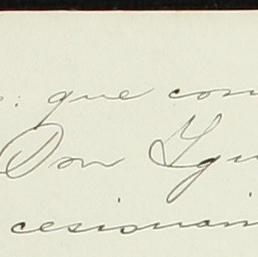 : que con
Don Ygn
cesionari